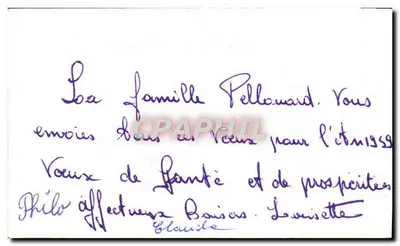 La famille Pellouard. Vous
envoies tous ces Vœux pour l'An 1959
Vœux de Santé et de prospéritées
Philo affectueux Baisers. Louisette
Claude